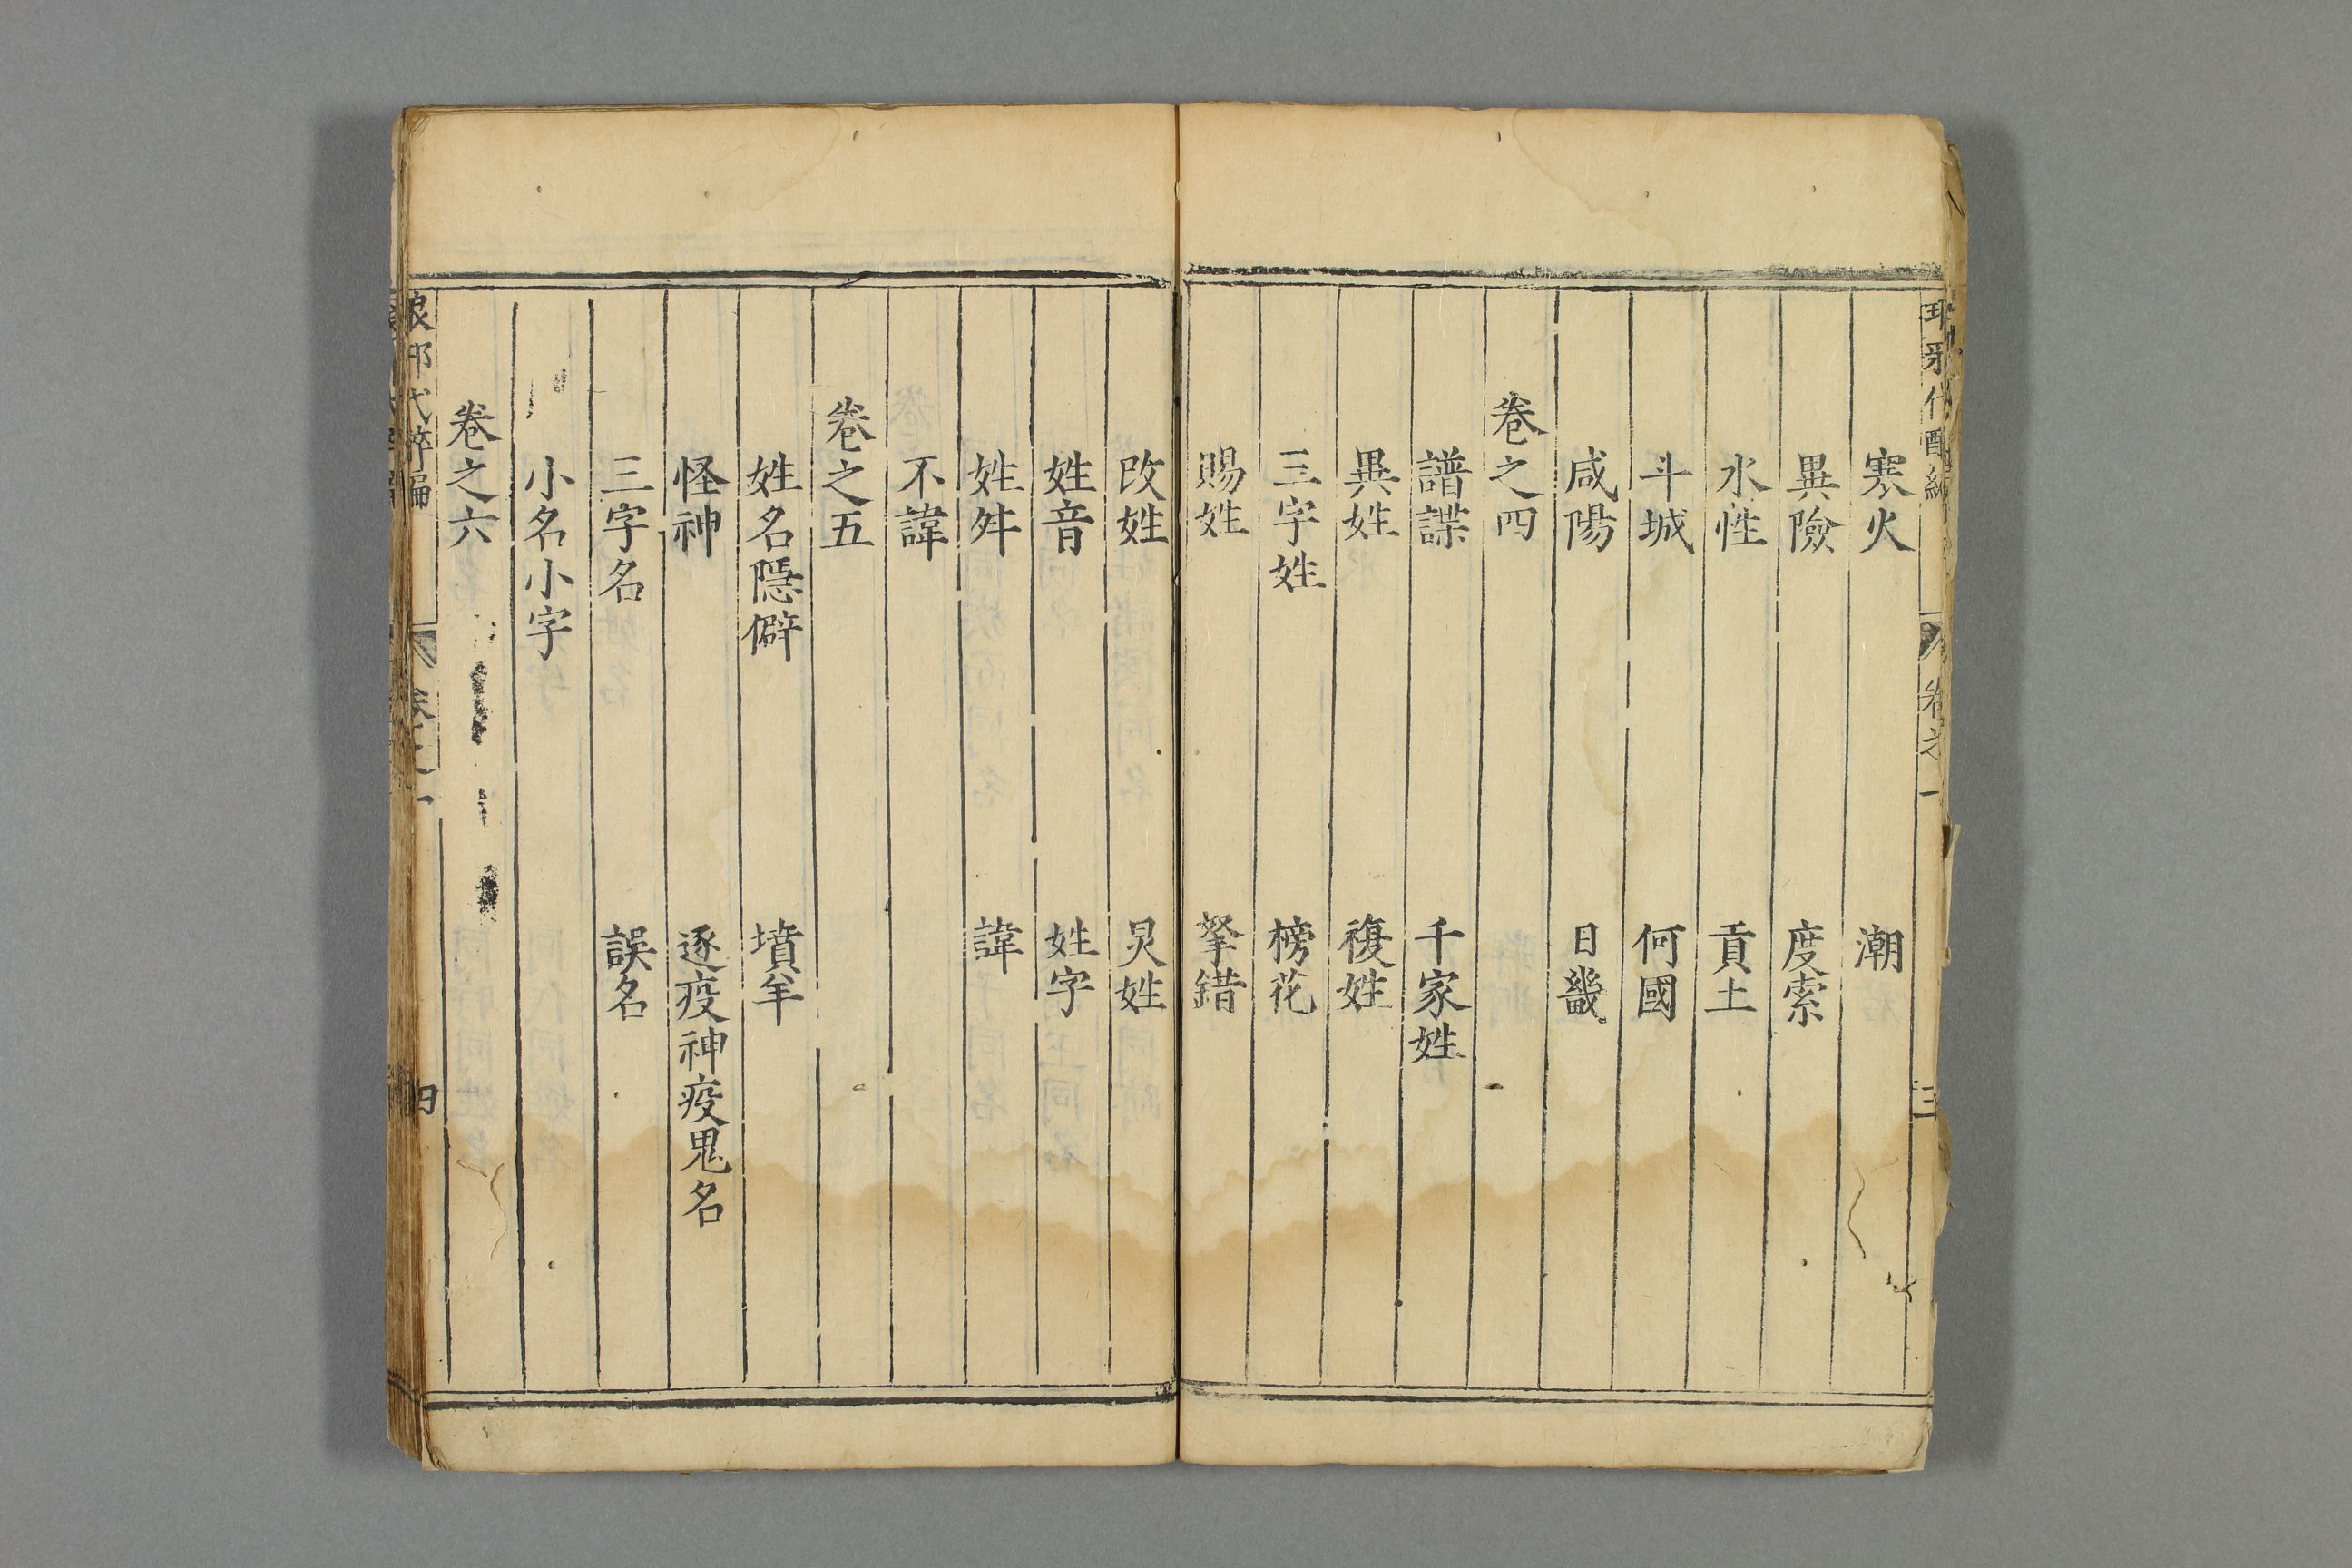 寒火　潮
異險　度索
水性　貢土
斗城　何國
咸陽　日畿
卷之四
譜諜　千家姓
異姓　複姓
三字姓　榜花
賜姓　拏錯
改姓　炅姓
姓音　姓字
姓舛　諱
不諱
卷之五
姓名隱僻　墳羊
怪神　逐疫神疫鬼名
三字名　誤名
小名小字
卷之六
琅邪代醉編　卷之一　四